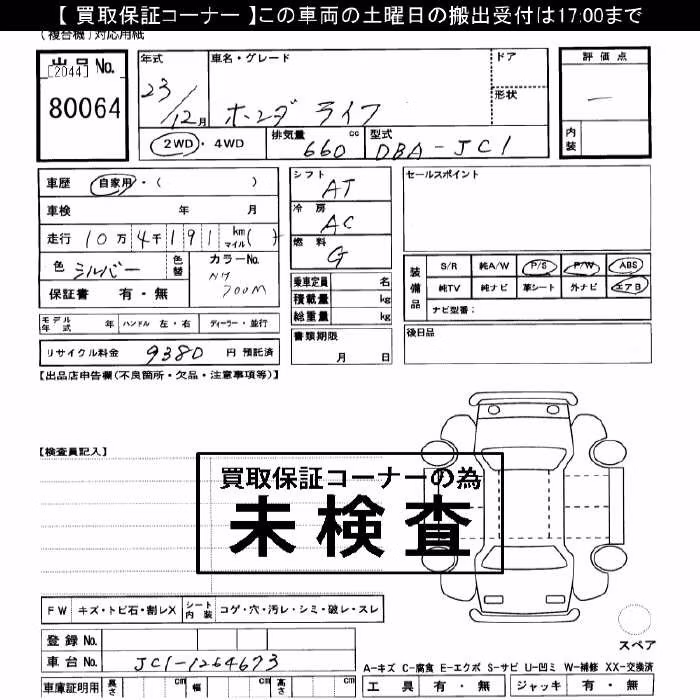 【 買取保証コーナー 】この車両の土曜日の搬出受付は17:00まで
(複合機)対応用紙
出品 No.
[2044]
80064
年式 車名・グレード ドア
23/12月 ホンダ ライフ 形状
2WD・4WD 排気量 660 cc 型式 DBA-JC1
評価点
—
内装
車歴 自家用・( )
車検 年 月
走行 10万4千191 km マイル( )
色 シルバー 色替 カラーNo. NH700M
保証書 有・無
モデル年式 年 ハンドル 左・右 ディーラー・並行
リサイクル料金 9380 円 預託済
シフト AT
冷房 AC
燃料 G
乗車定員 名
積載量 kg
総重量 kg
書類期限
月 日
セールスポイント
装備品 S/R 純A/W P/S P/W ABS
純TV 純ナビ 革シート 外ナビ エアB
ナビ型番:
後日品
【出品店申告欄(不良箇所・欠品・注意事項等)】
【検査員記入】
買取保証コーナーの為
未検査
FW キズ・トビ石・割レX シート内装 コゲ・穴・汚レ・シミ・破レ・スレ
登録 No.
車台 No. JC1-1264673
車庫証明用 長さ cm 幅 cm 高さ cm
スペア
A-キズ C-腐食 E-エクボ S-サビ U-凹ミ W-補修 XX-交換済
工具 有・無 ジャッキ 有・無